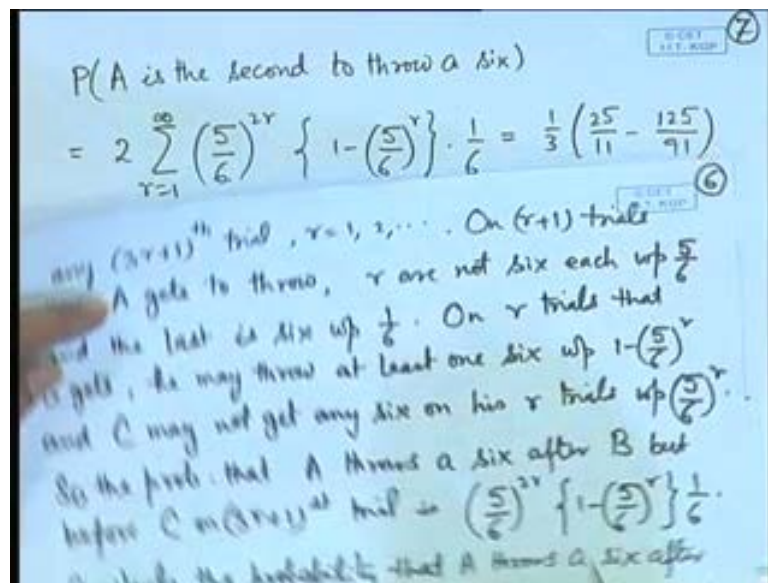 ⑦
P(A is the second to throw a six)
= 2 ∑_{r=1}^{∞} (5/6)^{2r} { 1-(5/6)^r } · 1/6 = 1/3 (25/11 - 125/91)
⑥
any (3r+1)th trial, r=1, 2, .... On (r+1) trials
A gets to throw, r are not six each wp 5/6
and the last is six wp 1/6. On r trials that
gets, he may throw at least one six wp 1-(5/6)^r
and C may not get any six on his r trials wp (5/6)^r.
So the prob. that A throws a six after B but
before C on (3r+1)st trial is (5/6)^{2r} {1-(5/6)^r} 1/6.
the probability that A throws a six after